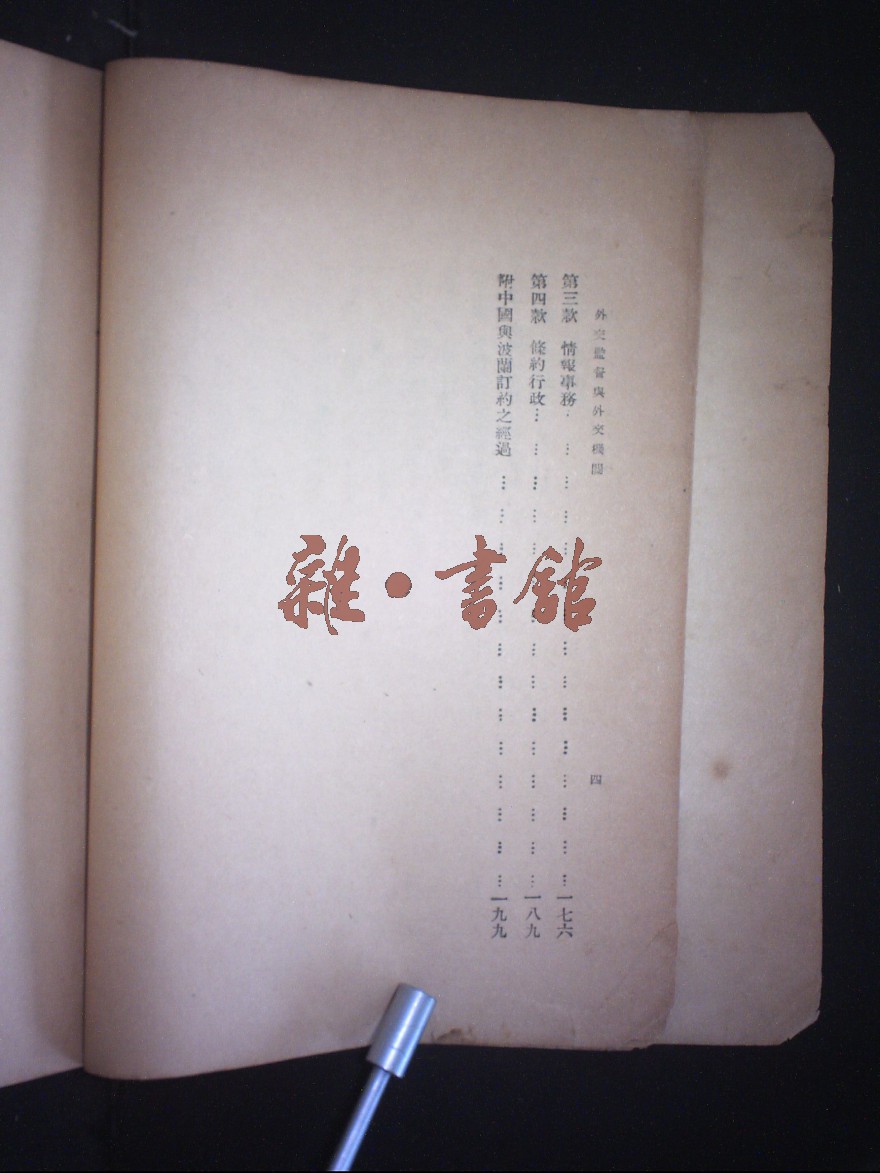 外交監督與外交機關
四
第三款　情報事務………………………………一七六
第四款　條約行政………………………………一八九
附中國與波蘭訂約之經過………………………………一九九
雜·書館